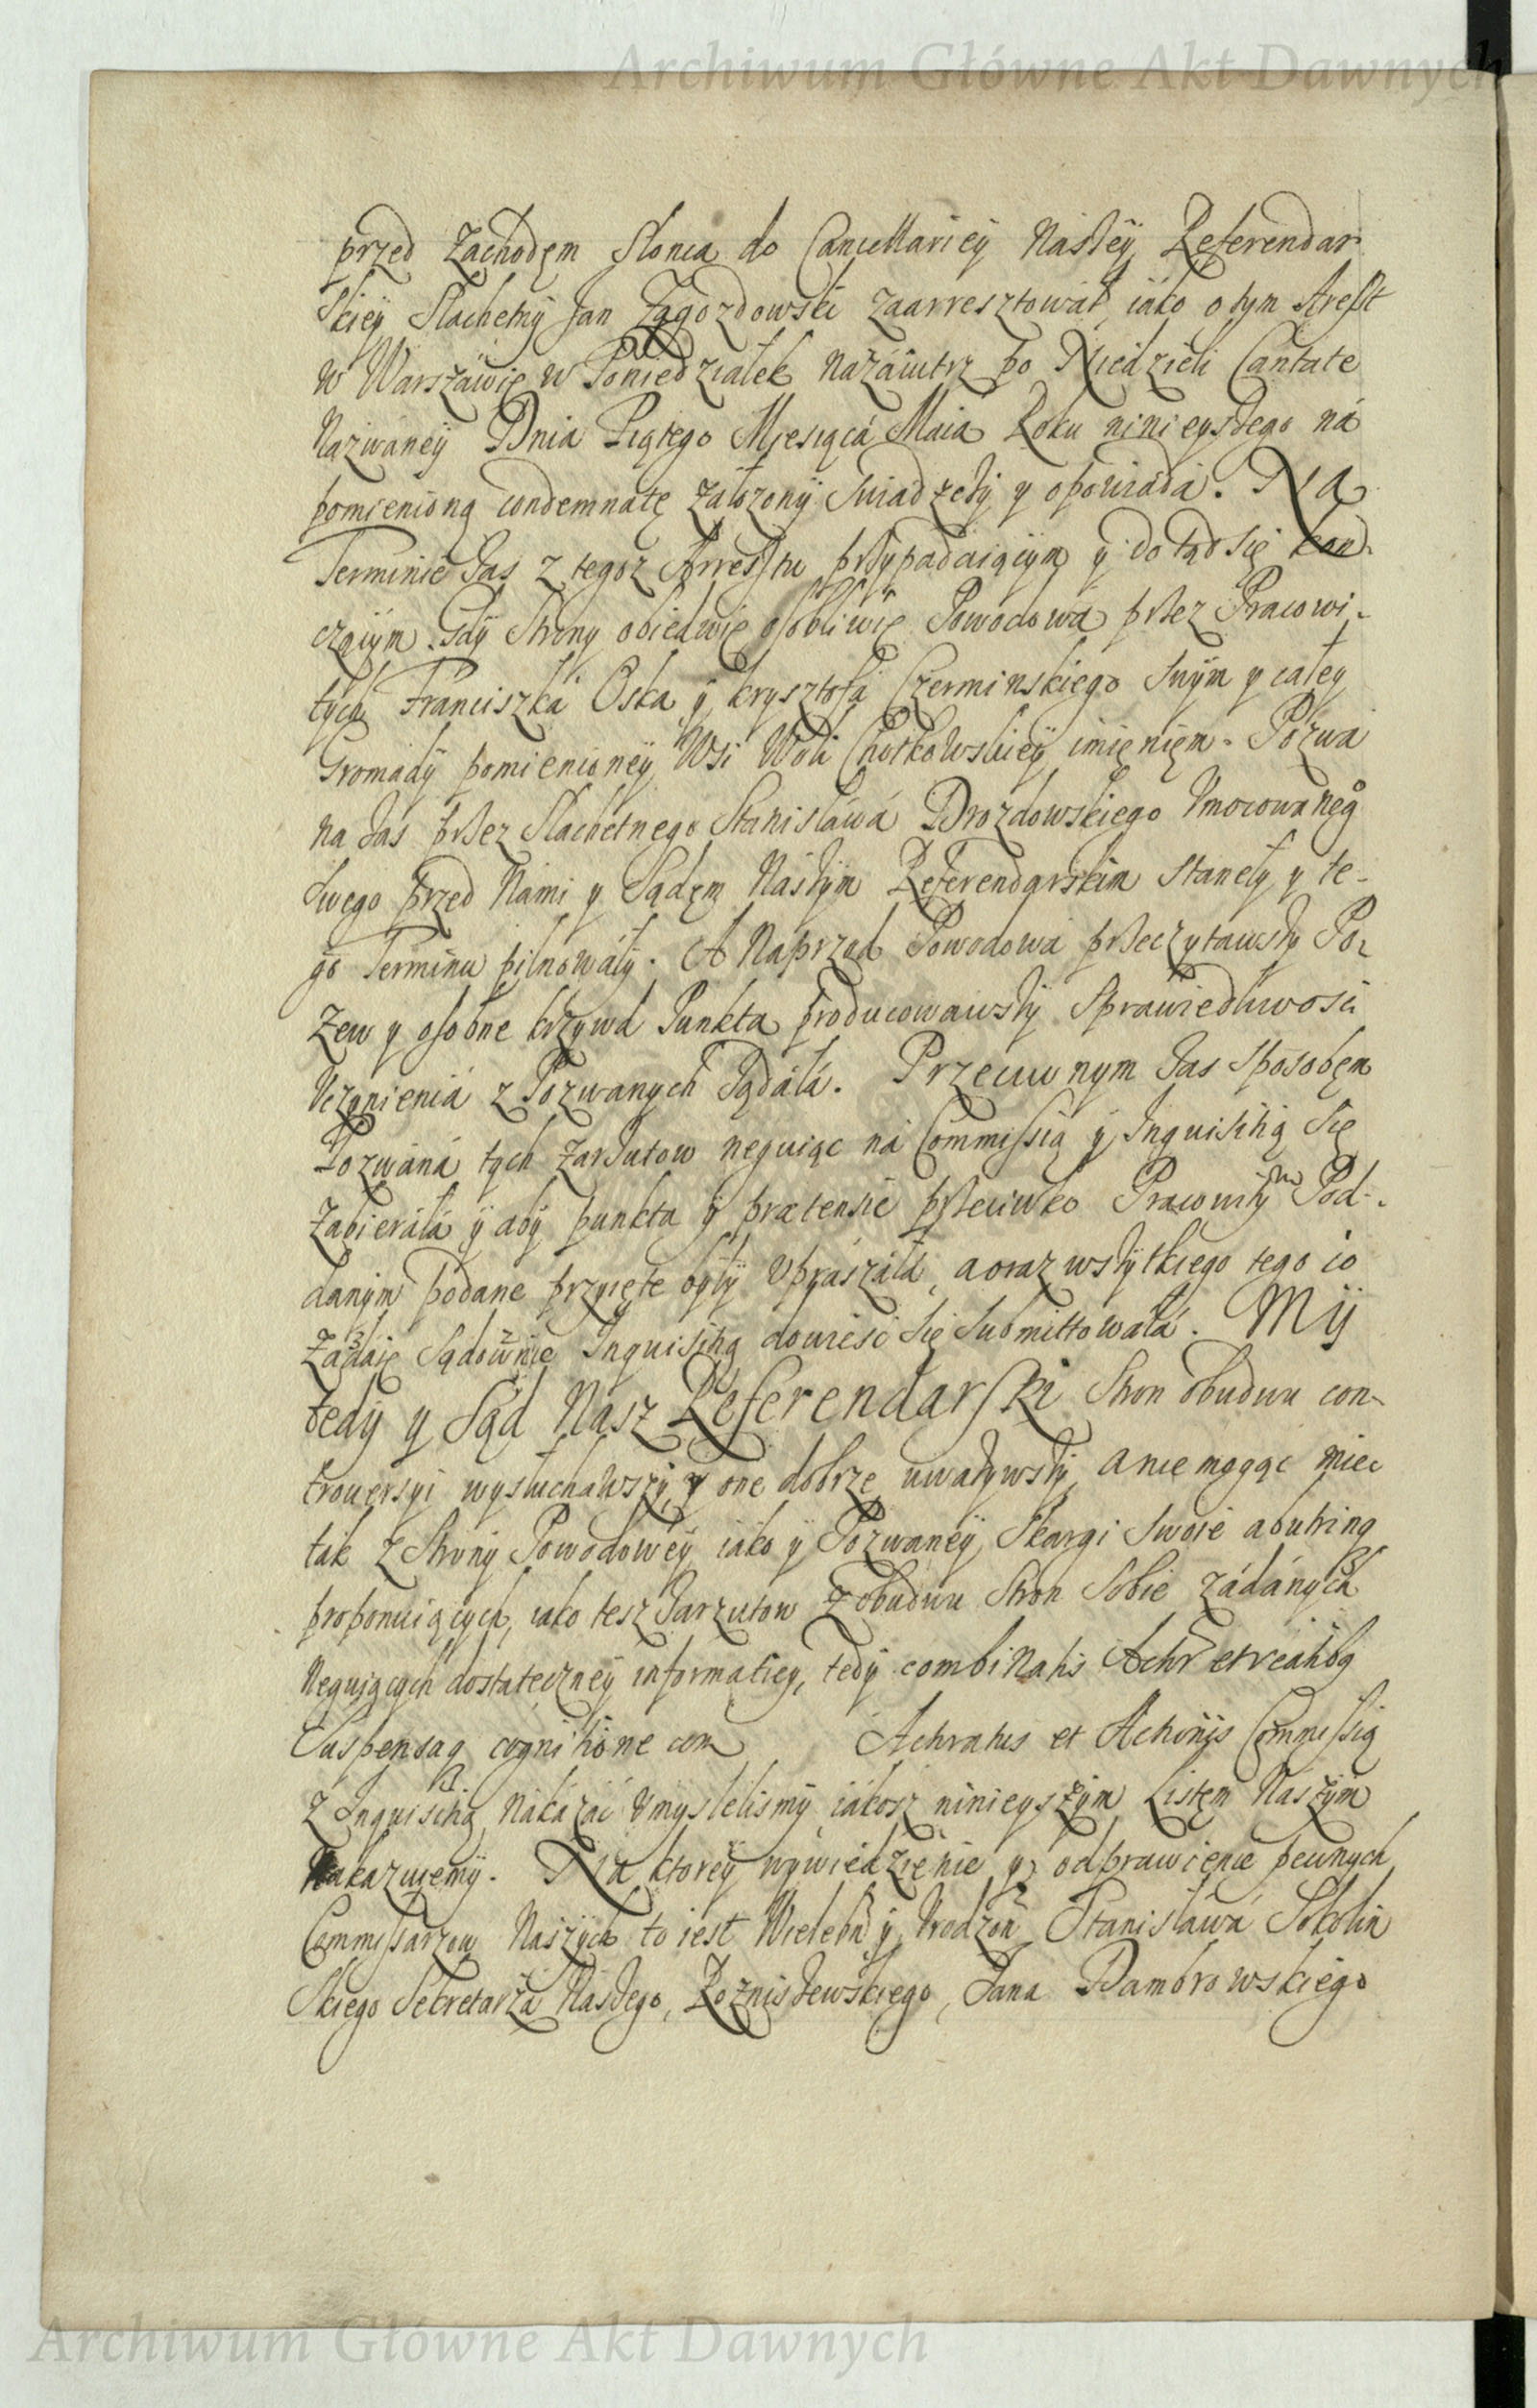 Archiwum Główne Akt Dawnych
przed Zachodęm Słonca do Cancellariey Naszey Referendar
skiey Slachetny Jan Zagozdowski zaarresztował, iako o tym Areszt
w Warszawie w Poniedziałek nazaiutrz po Niedzieli Cantate
Nazwaney Dnia Piątego Miesiąca Maia Roku ninieyszego na
pomienioną condemnatę założony swiadzety y opowiada. Na
Terminie zas z tegoz Arresztu przypadaiącym y dotąd się kon-
czącym. Gdy Strony obiedwie osobliwie Powodowa przez Pracowi-
tych Franciszka Oska y krysztofa Czerminskiego swym y całey
Gromady pomienioney Wsi Woli Chotkowskiey imięnięm. Pozwa
na zas przez Slachetnego Stanisława Drozdowskiego Umocowaneg
swego przed Nami y Sądęm Naszym Referendarskim stanęły y te-
go Terminu pilnowały. A Naprzod Powodowa przeczytawszy Po-
zew y osobne krzywd Punkta producowawszy Sprawiedliwosci
Uczynienia z Pozwanych Ządała. Przeciwnym zas sposobęm
Pozwana tych zarzutow neguiąc na Commissią y Inquisitią się
Zabierała y aby punkta y prætensie przeciwko Pracowitym Pod-
danym podane przyięte były upraszała, a oraz wszytkiego tego co
Zadaie Sądownie Inquisitią dowiesc się submittowała. My
tedy y Sąd Nasz Referendarski Stron obudwu con-
trouersyi wysłuchawszy, y one dobrze uwazywszy, a nie mogąc miec
tak z Strony Powodowey iako y Pozwaney Skargi swoie ab utring
proponuiących, iako tesz Zarzutow z obudwu Stron sobie zadanych
Neguiących dostateczney informatiey, tedy combinatis
Suspensaq cognitione com Attratus et Actionis Commissią
z Inquisitią Nakazac umyslelismy iakosz ninieyszym Listęm Naszym
Nakazuiemy. Na ktorey wywiedzienie y odprawienie pewnych
Commissarzow Naszych to iest Wieleb y Urodzon Stanisława Sokolin
skiego Sekretarza Naszego, Rozniszewskiego, Jana Dambrowskiego
Archiwum Główne Akt Dawnych